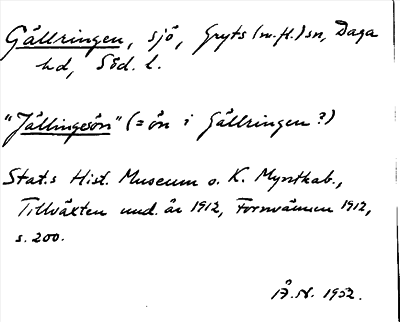 Gällringen, sjö, Gryts (m.fl.) sn, Daga
hd, Söd. l.
"Jällingeön" (= ön i Gällringen?)
Stat.s Hist. Museum o. K. Myntkab.,
Tillväxten und. år 1912, Fornvännen 1912,
s. 200.
1952.